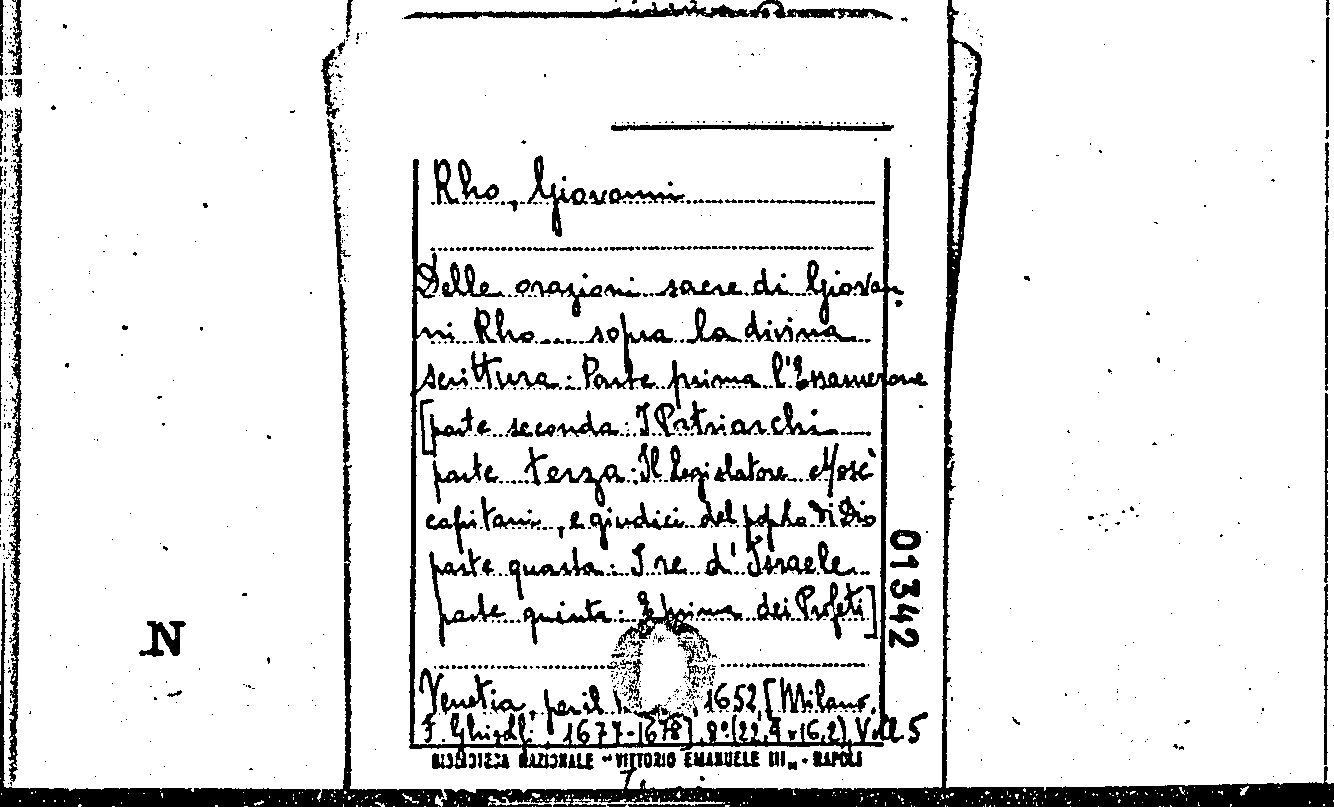 Rho, Giovanni
Delle orazioni sacre di Giovan.
ni Rho... sopra la divina
scrittura: Parte prima l'Essamerone
[parte seconda: I Patriarchi
parte terza: Il legislatore Mosè
capitani, e giudici del popolo di Dio
parte quarta: I re d'Israele
parte quinta: E prima dei Profeti]
Venetia, per il 1652, [Milano,
F. Ghisolfi: 1677-1678], 8° (22,4 x 16,2) Voll. 5
BIBLIOTECA NAZIONALE "VITTORIO EMANUELE III" - NAPOLI
01342
N